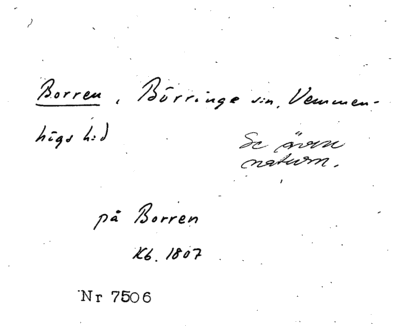 Borren, Börringe sn, Vemmen-
högs hd
Se även
naturn.
på Borren
Kb. 1807
Nr 7506